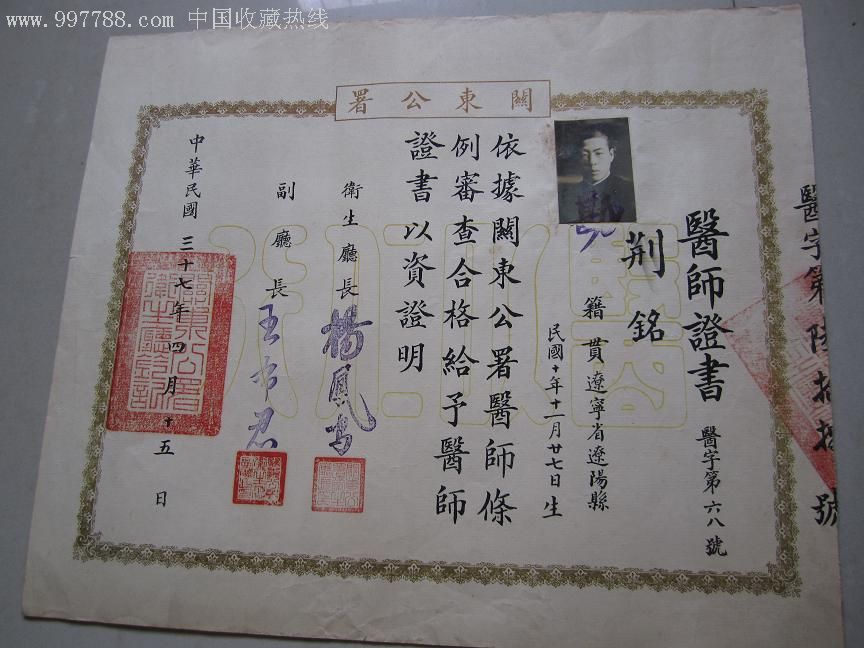 www.997788.com 中国收藏热线
關東公署
醫師證書 醫字第六八號
荆銘
籍貫遼寧省遼陽縣
民國十年十一月廿七日生
依據關東公署醫師條
例審查合格給予醫師
證書以資證明
衛生廳長 楊鳳鳴
副廳長
中華民國三十七年四月十五日